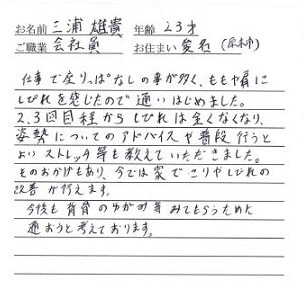 お名前 三浦 雄貴 年齢 23才
ご職業 会社員 お住まい 愛名 (厚木市)
仕事で座りっぱなしの事が多く、ももや肩に
しびれを感じたので通いはじめました。
2、3回目程からしびれは全くなくなり、
姿勢についてのアドバイスや普段行うと
よいストレッチ等も教えていただきました。
そのおかげもあり、今では家でこりやしびれの
改善が行えます。
今後も背骨のゆがみ等みてもらうために
通おうと考えております。